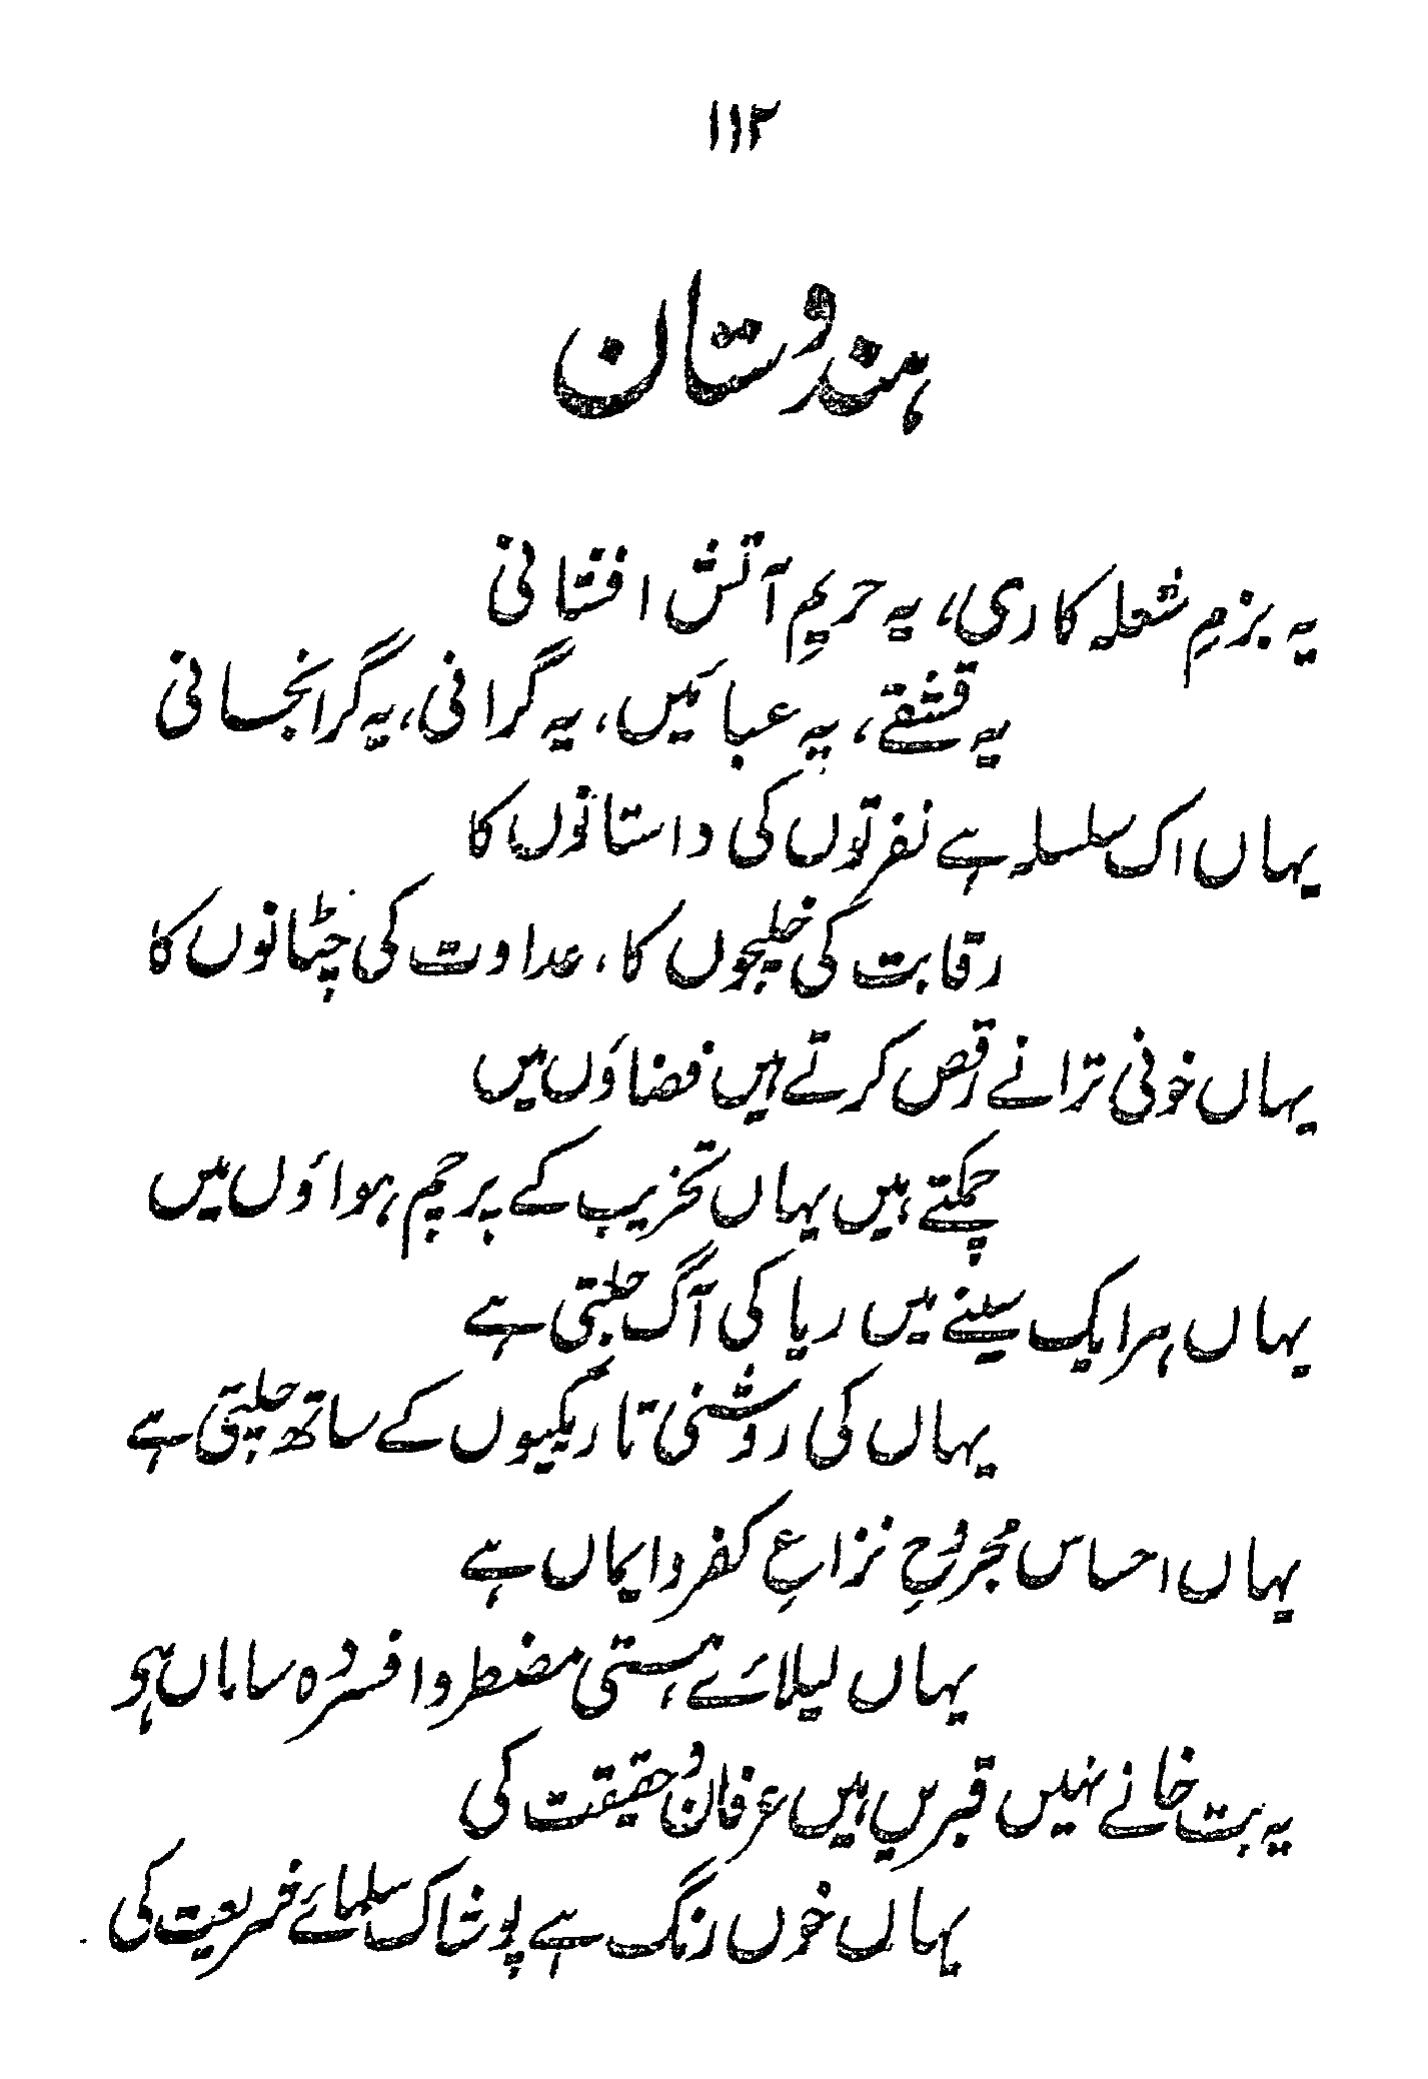 ۱۱۲
ہندوستان
یہ بزمِ شعلہ کاری، یہ حریمِ آتش افشانی
یہ قشقے، یہ عبائیں، یہ گرانی، یہ گرانجانی
یہاں اک سلسلہ ہے نفرتوں کی داستانوں کا
رقابت کی خلیجوں کا، عداوت کی چٹانوں کا
یہاں خونی ترانے رقص کرتے ہیں فضاؤں میں
چمکتے ہیں یہاں تخریب کے پرچم ہواؤں میں
یہاں ہر ایک سینے میں ریا کی آگ جلتی ہے
یہاں کی روشنی تاریکیوں کے ساتھ چلتی ہے
یہاں احساس مجروحِ نزاعِ کفر و ایماں ہے
یہاں لیلائے ہستی مضطر و افسردہ ساماں ہو
یہ بت خانے نہیں قبریں ہیں عرفان و حقیقت کی
یہاں خوں رنگ ہے پوشاک سلمائے شریعت کی